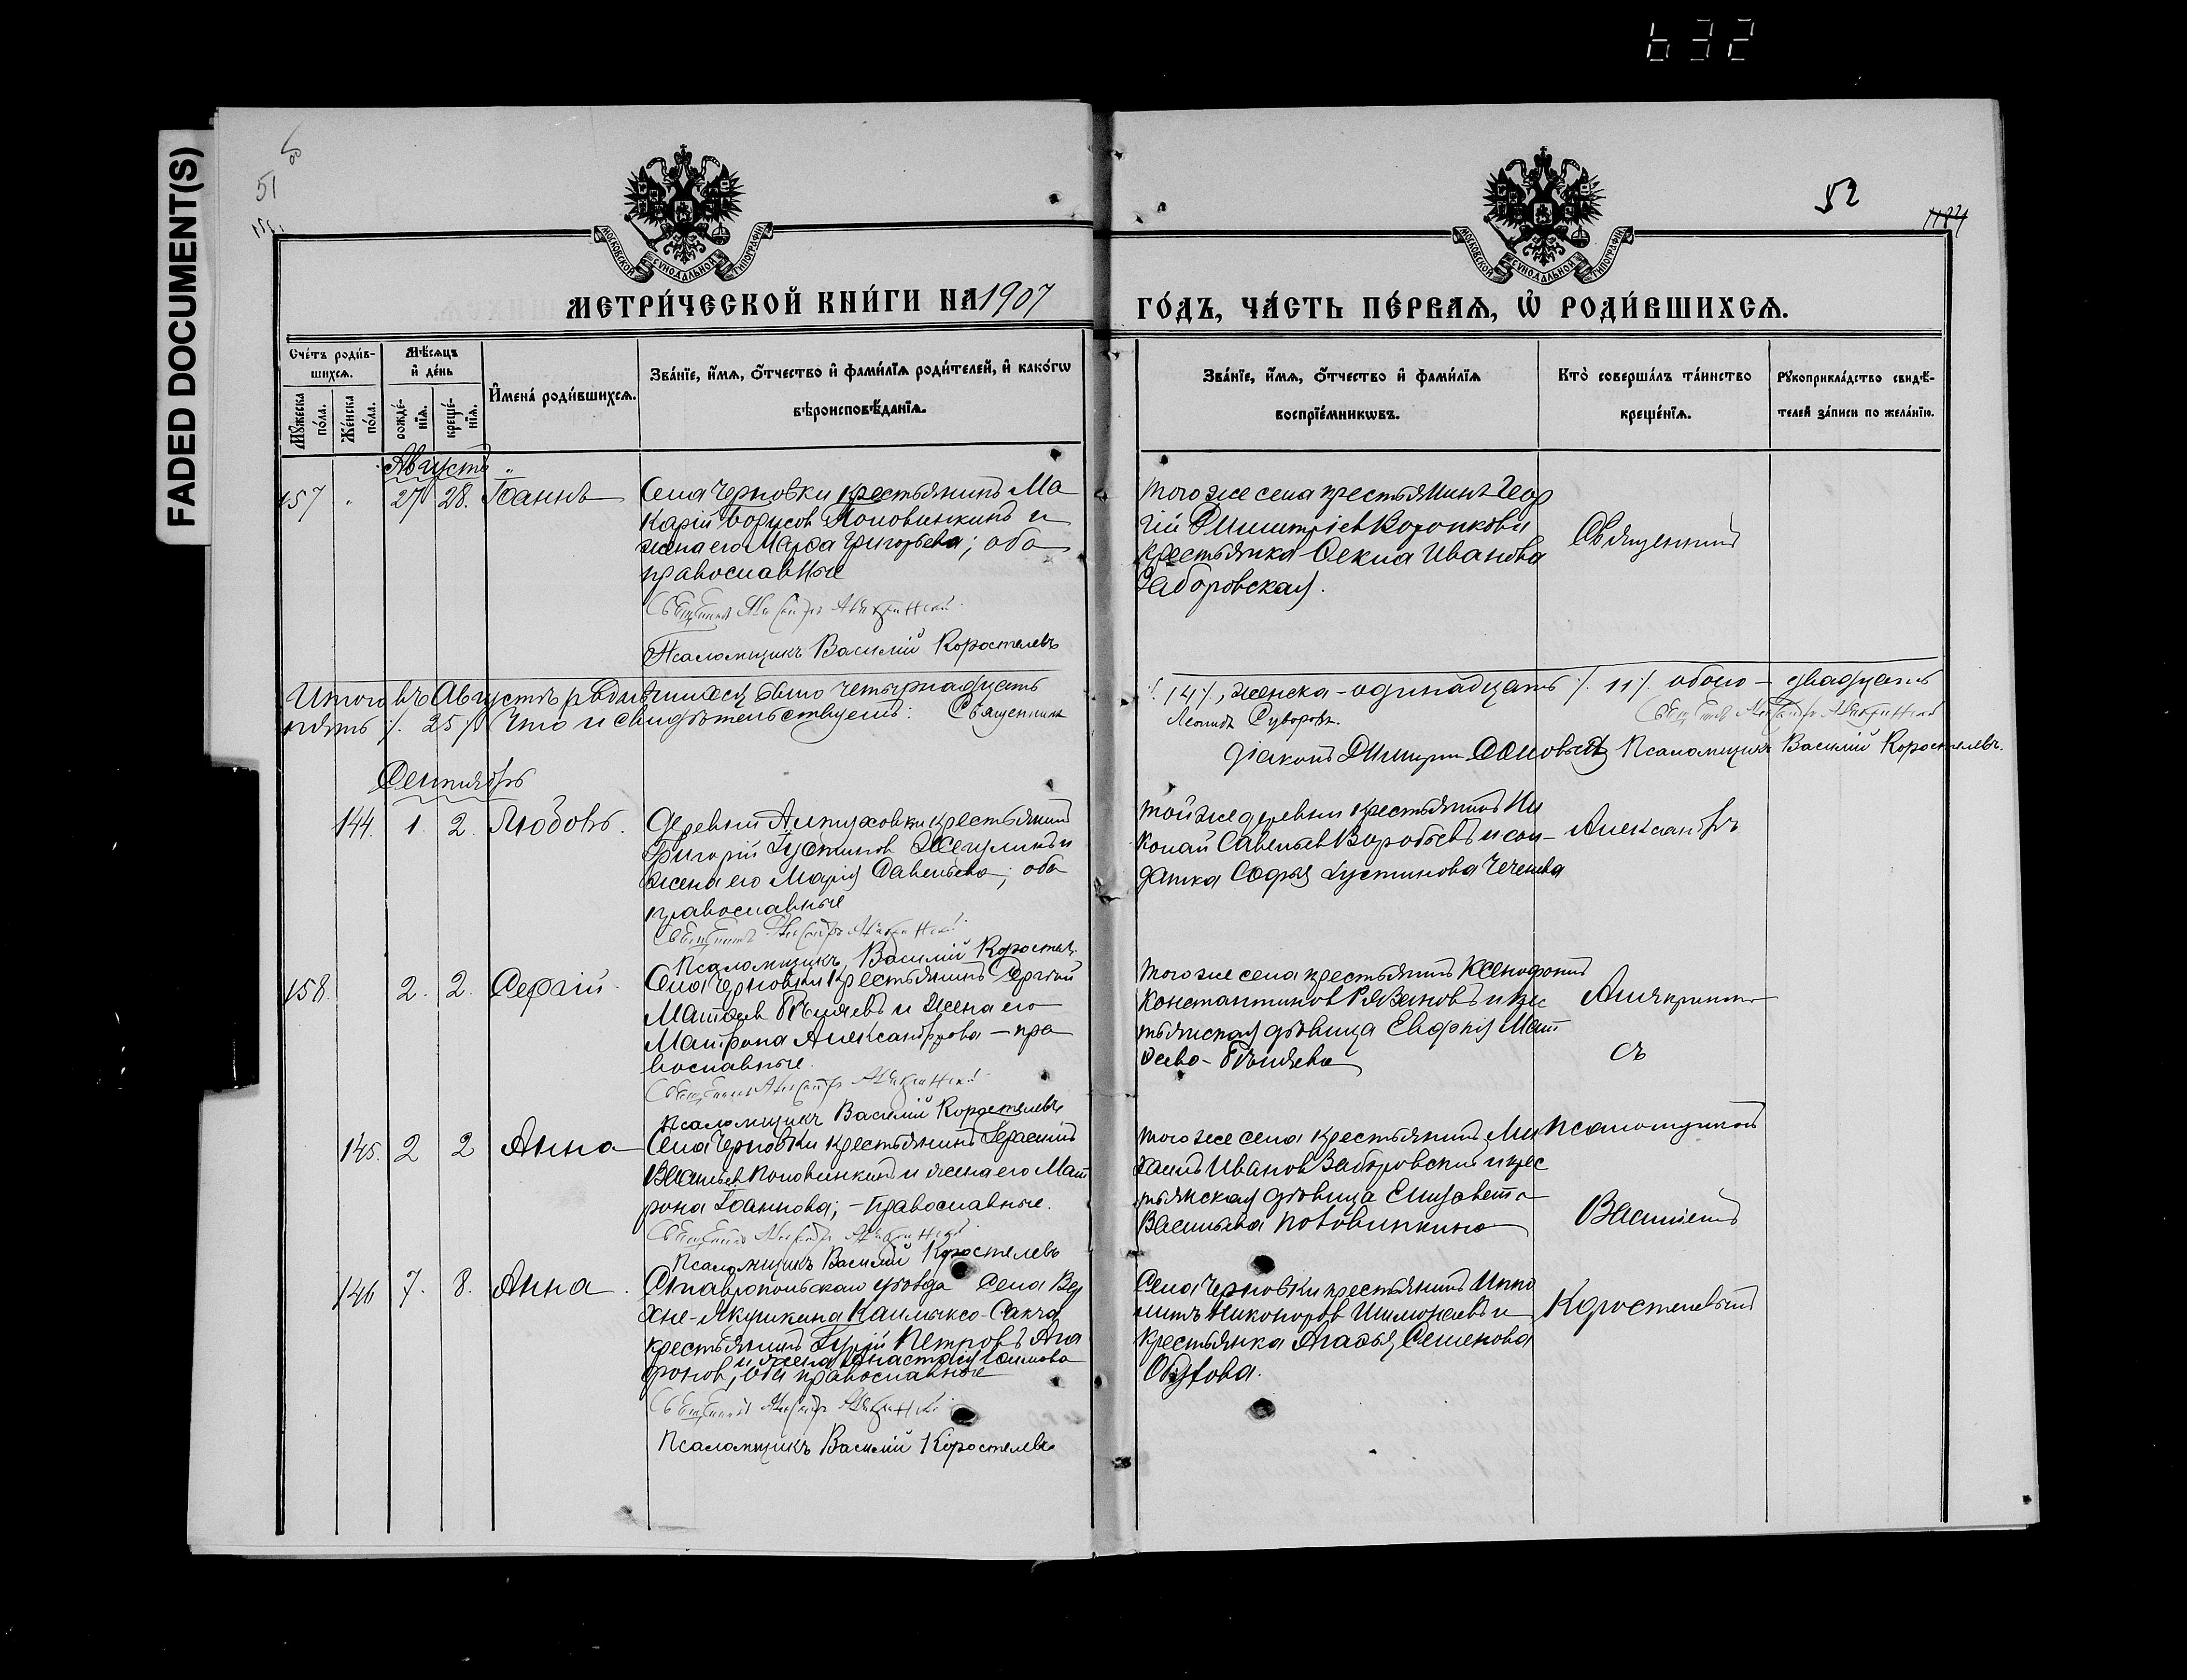 632
FADED DOCUMENT(S)
51
52
МОСКОВСКОЙ СѴНОДАЛЬНОЙ ТИПОГРАФІИ
МОСКОВСКОЙ СѴНОДАЛЬНОЙ ТИПОГРАФІИ
МЕТРИ́ЧЕСКОЙ КНИ́ГИ НА 1907
ГО́ДЪ, ЧА́СТЬ ПЕ́РВАѦ, Ѡ҆ РОДИ́ВШИХСѦ.
Сче́тъ роди́в-
шихсѧ.
Мꙋ́жеска по́ла.
Же́нска по́ла.
Мѣ́сѧцъ
и҆ де́нь
рожде́-
нїѧ.
креще́-
нїѧ.
И҆мена̀ роди́вшихсѧ.
Зва́нїе, и҆́мѧ, ѻ҆́тчество и҆ фами́лїѧ роди́телей, и҆ како́гѡ
вѣроисповѣ́данїѧ.
Зва́нїе, и҆́мѧ, ѻ҆́тчество и҆ фами́лїѧ
воспрїе́мникѡвъ.
Кто̀ соверша́лъ та́инство
креще́нїѧ.
Рꙋкоприкла́дство свидѣ́-
телей за́писи по жела́нїю.
Августъ
157 " 27 28. Іоаннъ
Села Черновки крестьянинъ Ма
карій Борисов Половинкинъ и
жена его Марѳа Григорьева; оба
православные
Священникъ
Псаломщикъ Василій Коростелевъ
того же села крестьянинъ Геор
гій Димитріев Воронков и
крестьянка Ѳекла Иванова
Заборовская.
Священникъ
Итого въ Августѣ родившихся было четырнадцать
/. 14 /., женска - одинадцать /. 11 /. обоего - двадцать
пять /. 25 /. Что и свидѣтельствуемъ: Священникъ
Леонидъ Суворовъ.
Священникъ
Діаконъ Димитрій Соловьевъ Псаломщикъ Василій Коростелевъ.
Сентябрь
144. 1. 2. Любовь.
Деревни Алтуховки крестьянинъ
Григорій Іустинов Жегулинъ и
жена его Марія Савельева; оба
православные
Священникъ
Псаломщикъ, Василій Коростел.
той же деревни крестьянинъ Ни
колай Савельев Воробьевъ и сол-
датка Софья Іустинова Чечнева
Александръ
158. 2. 2. Сергій.
Села Черновки крестьянинъ Сергѣй
Матѳеев Бѣляевъ и жена его
Матрона Александрова - пра
вославные.
Священникъ
Псаломщикъ Василій Коростелевъ
того же села крестьянинъ Ксенофонтъ
Константинов Рябиновъ и крес
тьянская дѣвица Евдокія Мат
ѳеева Бѣляева
съ
145. 2 2 Анна
Села Черновки крестьянинъ Герасимъ
Васильев Половинкинъ и жена его Мат
рона Іоаннова; - православные.
Священникъ
Псаломщикъ Василій Коростелевъ
того же села крестьянинъ Ми
хаилъ Иванов Заборовскій и крес
тьянская дѣвица Елизавета
Васильева Половинкина
псаломщикомъ
Василіемъ
146 7. 8. Анна.
Ставропольскаго уѣзда Села Вер
хне-Якушкина
крестьянинъ Гурій Петровъ Ага
и жена Анастасія
фонов, оба православные
Священникъ
Псаломщикъ Василій Коростелевъ
Села Черновки крестьянинъ Иппо
литъ Никоноров и
крестьянка Агаѳья Семенова
Обухова.
Коростелевымъ